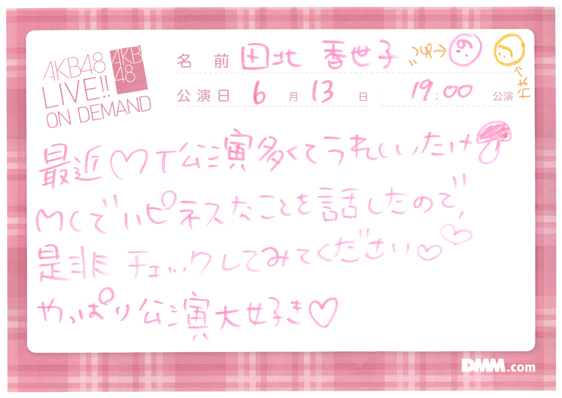 AKB48
LIVE!!
ON DEMAND
AKB
48
名前 田北 香世子
公演日 6月13日 19:00 公演
最近♡MT公演多くてうれしいたけ
MCでハピネスなことを話したので、
是非チェックしてみてください♡♡
やっぱり公演大好き♡
DMM.com